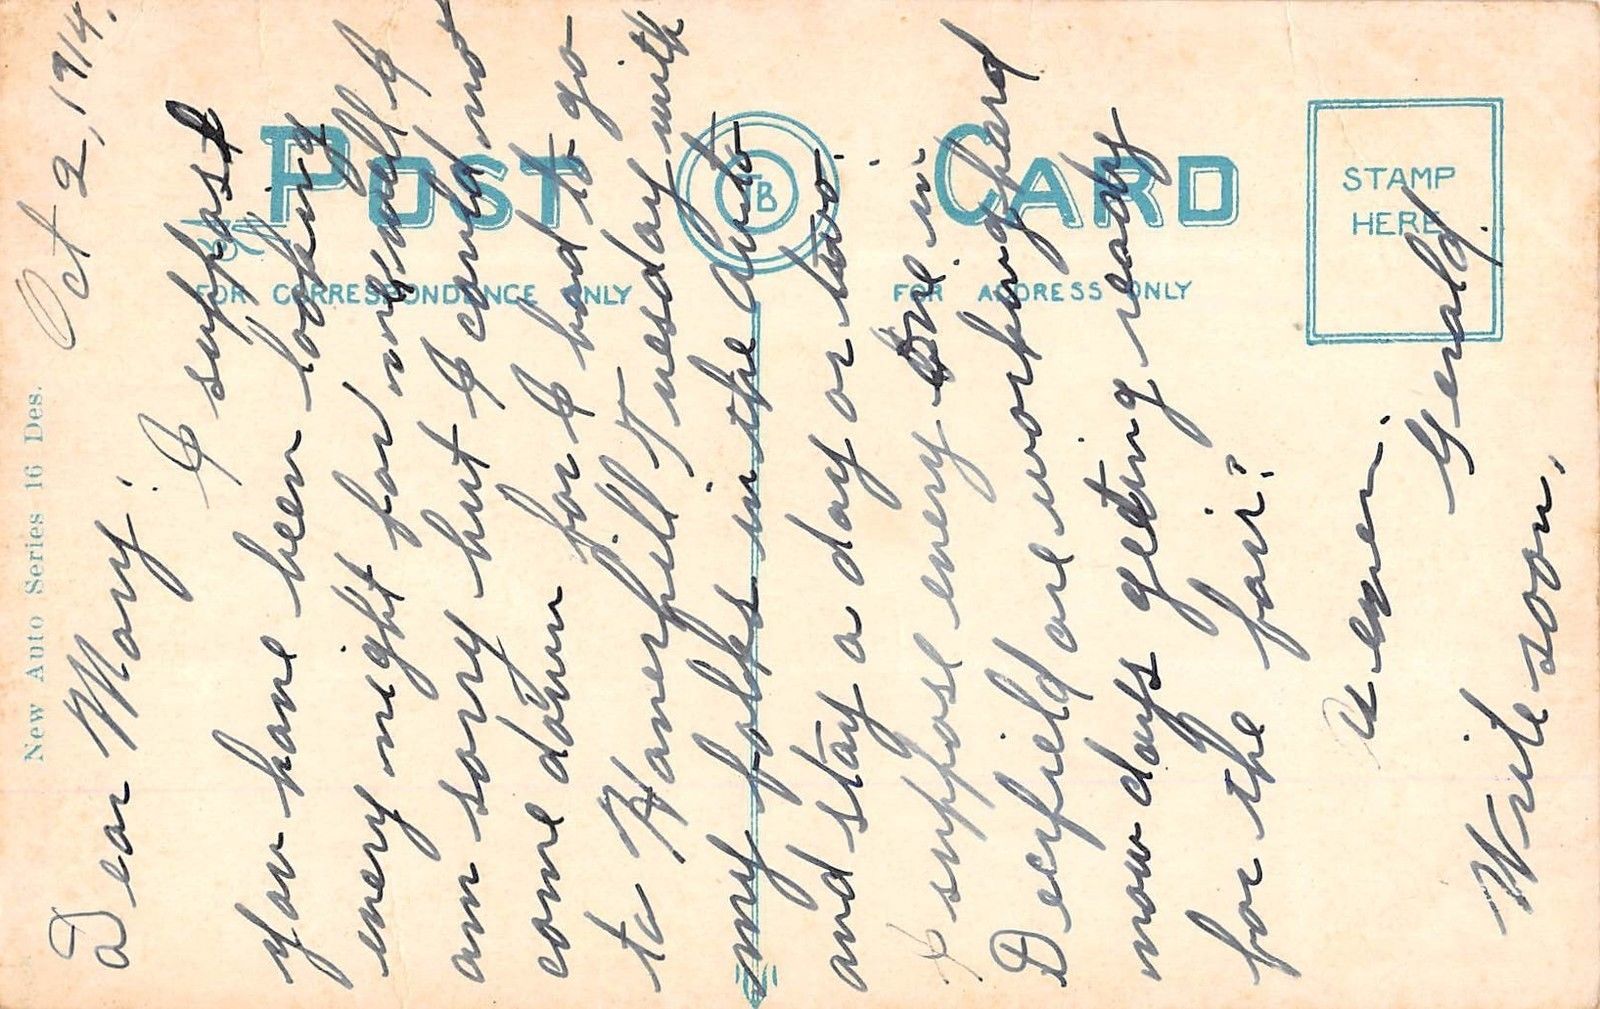 New Auto Series 16 Des.
POST CARD
TB
FOR CORRESPONDENCE ONLY
FOR ADDRESS ONLY
STAMP
HERE
Oct 2, 1914.
Dear Mary: I suppose
you have been looking
every night for me well I
am sorry but I could not
come down for I had to go
to Haverhill Tuesday with
my folks in the Auto
and stay a day or two.
I suppose every One in
Deerfield are working hard
now days geting ready
for the fair?
Gerald.
Write soon.